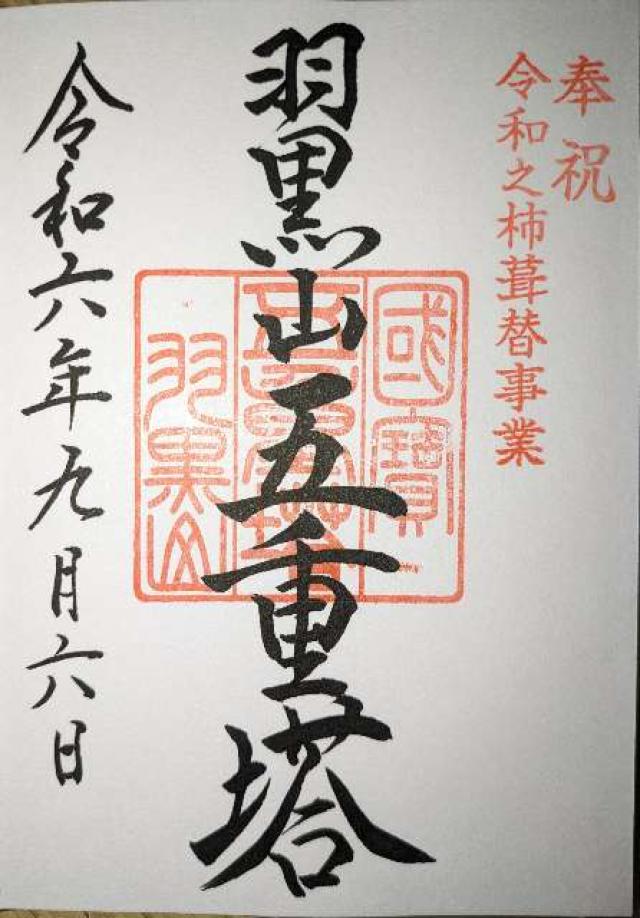 奉祝
令和之杮葺替事業
羽黒山五重塔
國寶
五重塔
羽黒山
令和六年九月六日